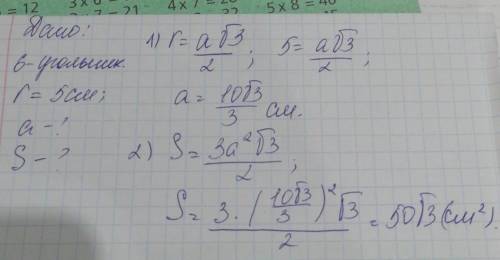 3 x 6 =
= 12
4 x 7 = 28
5 x 8 = 40
Дано:
6-угольник.
r = 5см;
a - ?
S - ?
1) r = a√3/2; 5 = a√3/2;
a = 10√3/3 см.
2) S = 3a²√3/2;
S = 3·(10√3/3)²√3/2 = 50√3(см²).